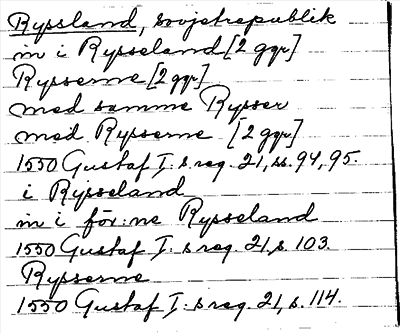 Ryssland, sovjetrepublik
in i Rysseland [2 ggr]
Rysserne [2 ggr]
med samme Rysser
med Rysserne [2 ggr]
1550 Gustaf I:s reg. 21, ss. 94, 95.
i Rysseland
in i för:ne Rysseland
1550 Gustaf I:s reg. 21, s. 103.
Rysserne
1550 Gustaf I:s reg. 21, s. 114.